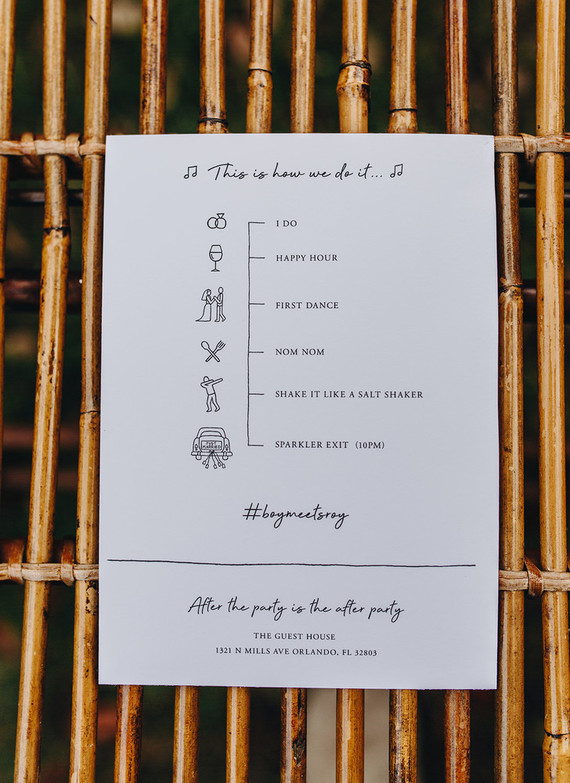 This is how we do it...
I DO
HAPPY HOUR
FIRST DANCE
NOM NOM
SHAKE IT LIKE A SALT SHAKER
JUST MARRIED
SPARKLER EXIT (10PM)
#boymeetsroy
After the party is the after party
THE GUEST HOUSE
1321 N MILLS AVE ORLANDO, FL 32803